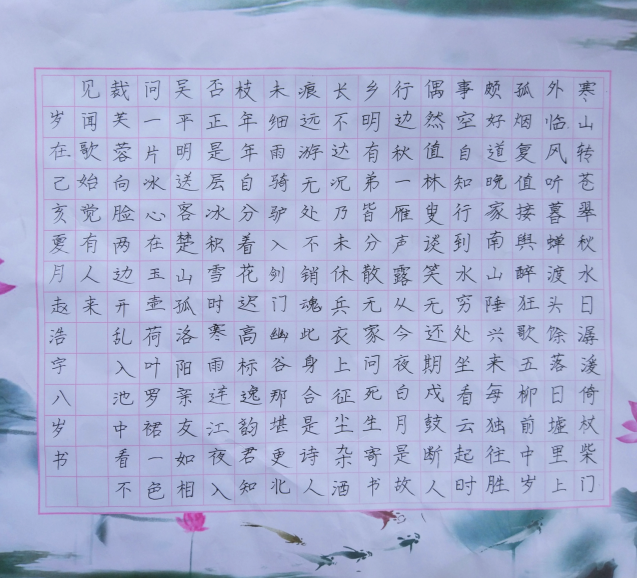 寒山转苍翠秋水日潺湲倚杖柴门
外临风听暮蝉渡头馀落日墟里上
孤烟复值接舆醉狂歌五柳前中岁
颇好道晚家南山陲兴来每独往胜
事空自知行到水穷处坐看云起时
偶然值林叟谈笑无还期戍鼓断人
行边秋一雁声露从今夜白月是故
乡明有弟皆分散无家问死生寄书
长不达况乃未休兵衣上征尘杂酒
痕远游无处不销魂此身合是诗人
未细雨骑驴入剑门幽谷那堪更北
枝年年自分着花迟高标逸韵君知
否正是层冰积雪时寒雨连江夜入
吴平明送客楚山孤洛阳亲友如相
问一片冰心在玉壶荷叶罗裙一色
裁芙蓉向脸两边开乱入池中看不
见闻歌始觉有人来
岁在己亥夏月赵浩宇八岁书